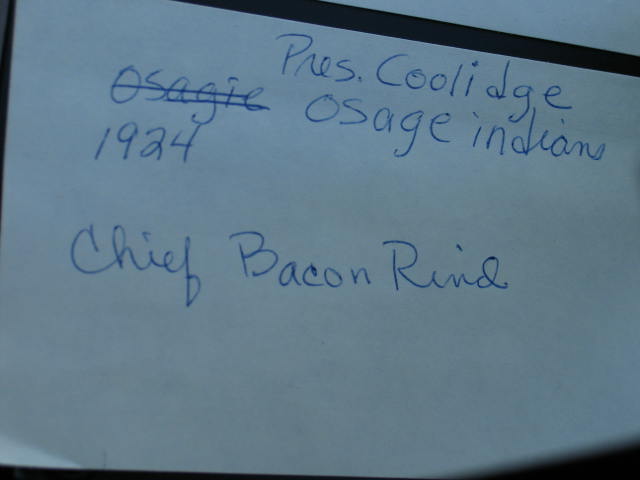 Pres. Coolidge
Osagie Osage indians
1924
Chief Bacon Rind